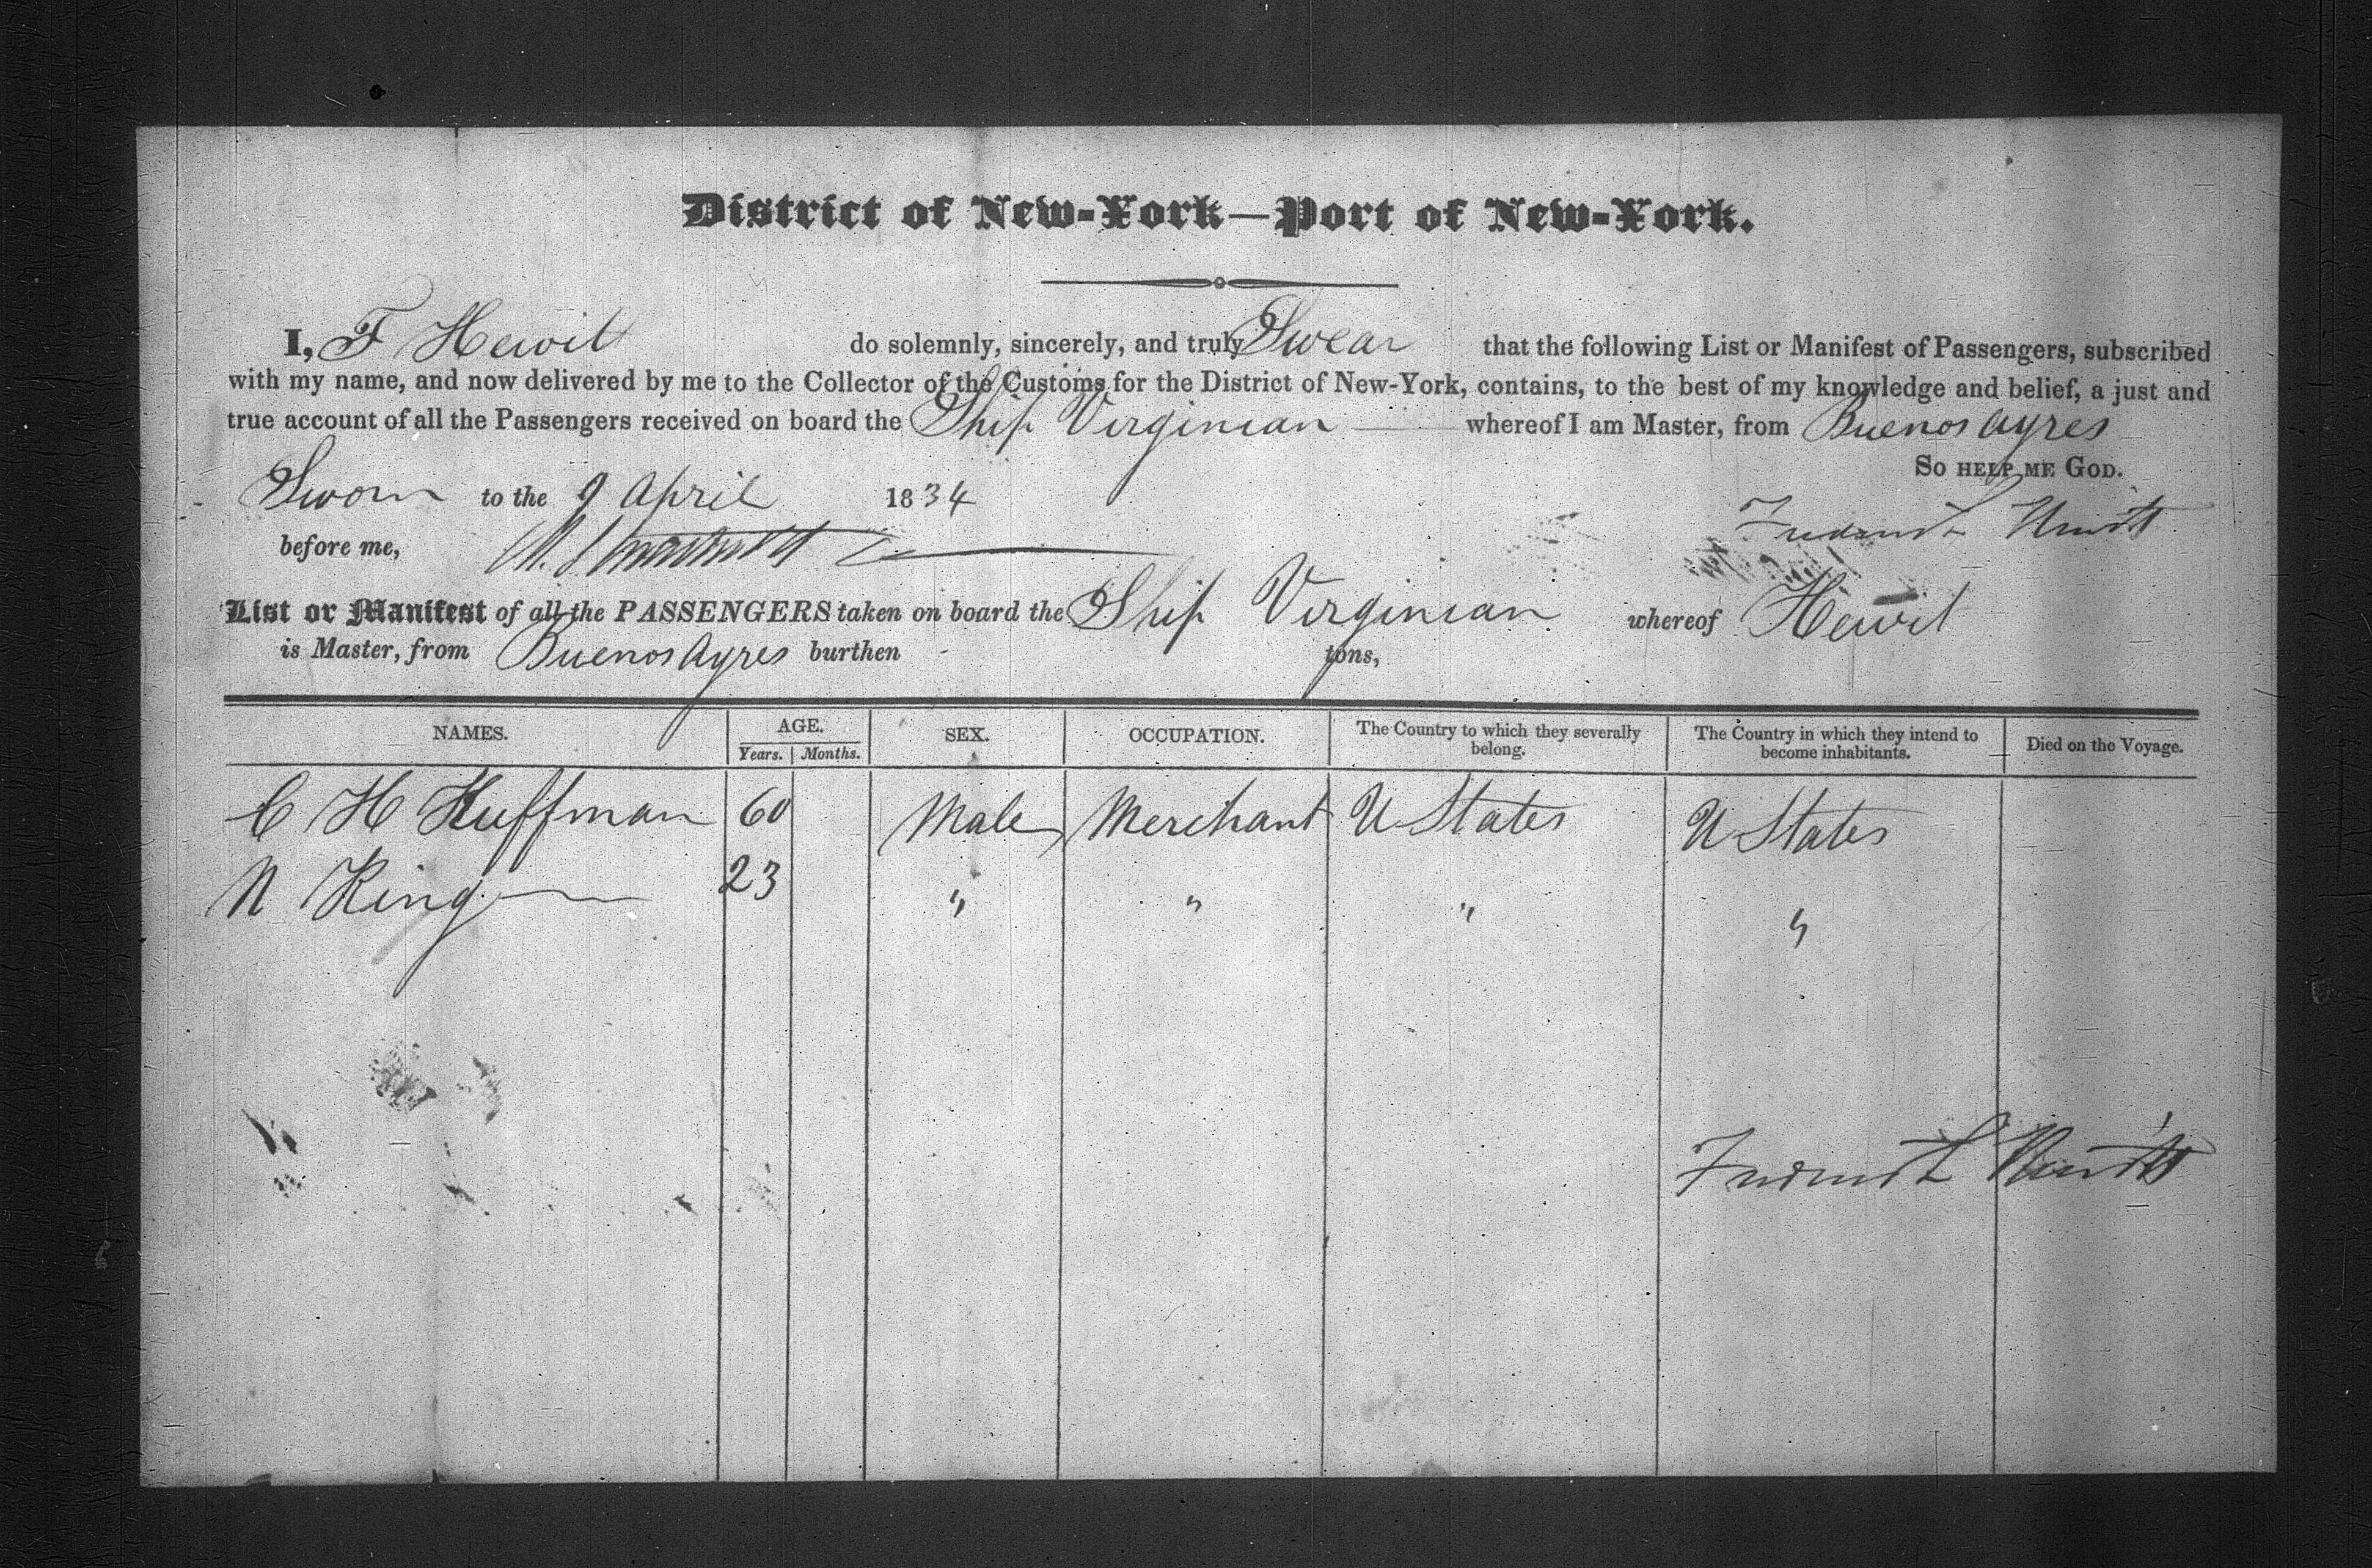 District of New-York—Port of New-York.
I, F Hewit do solemnly, sincerely, and truly Swear that the following List or Manifest of Passengers, subscribed
with my name, and now delivered by me to the Collector of the Customs for the District of New-York, contains, to the best of my knowledge and belief, a just and
true account of all the Passengers received on board the Ship Virginian whereof I am Master, from Buenos Ayres
So help me God.
Sworn to the 9 April 1834
Frederick Hewitt
before me,
List or Manifest of all the PASSENGERS taken on board the Ship Virginian whereof Hewit
is Master, from Buenos Ayres burthen tons,
NAMES. AGE. SEX. OCCUPATION. The Country to which they severally belong. The Country in which they intend to become inhabitants. Died on the Voyage.
Years. Months.
C H Huffman 60 Male Merchant U States U States
N King 23 " " " "
Frederick Hewitt